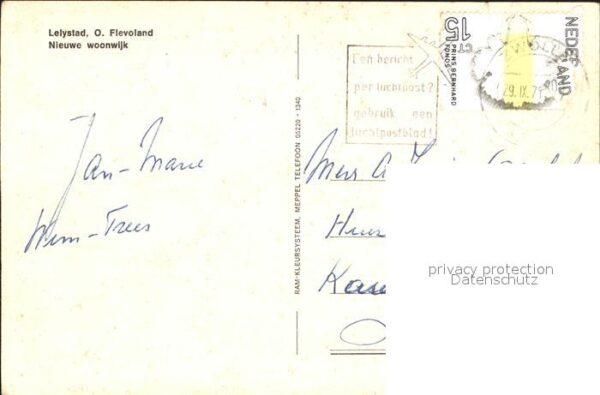 Lelystad, O. Flevoland
Nieuwe woonwijk
Jan-Marie
Wim-Trees
RAM-KLEURSYSTEEM, MEPPEL TELEFOON 05220 - 1340
Een bericht
per luchtpost?
gebruik een
luchtpostblad!
NEDERLAND
15 CT
PRINS BERNHARD
FONDS
ZWOLLE
29.IX.71
privacy protection
Datenschutz